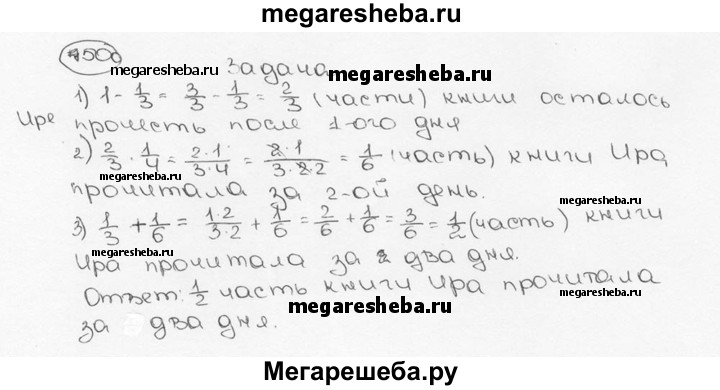 megaresheba.ru
500
megaresheba.ru
Задача
megaresheba.ru
1) 1 - 1/3 = 3/3 - 1/3 = 2/3 (части) книги осталось
Ире прочесть после 1-ого дня
2) 2/3 · 1/4 = 2·1/3·4 = 2·1/3·2·2 = 1/6 (часть) книги Ира
megaresheba.ru
megaresheba.ru
прочитала за 2-ой день.
3) 1/3 + 1/6 = 1·2/3·2 + 1/6 = 2/6 + 1/6 = 3/6 = 1/2 (часть) книги
megaresheba.ru
Ира прочитала за 2 два дня.
Ответ: 1/2 часть книги Ира прочитала
megaresheba.ru
megaresheba.ru
за два дня.
Мегарешеба.ру